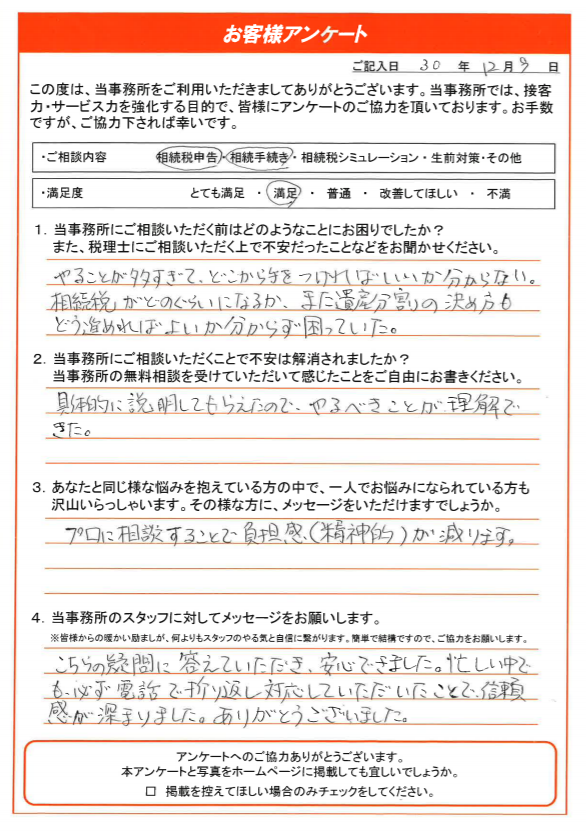 お客様アンケート
ご記入日 30 年 12月 9 日
この度は、当事務所をご利用いただきましてありがとうございます。当事務所では、接客
力・サービス力を強化する目的で、皆様にアンケートのご協力を頂いております。お手数
ですが、ご協力下されば幸いです。
・ご相談内容 相続税申告・相続手続き・相続税シミュレーション・生前対策・その他
・満足度 とても満足 ・ 満足 ・ 普通 ・ 改善してほしい ・ 不満
1. 当事務所にご相談いただく前はどのようなことにお困りでしたか？
また、税理士にご相談いただく上で不安だったことなどをお聞かせください。
やることが多すぎて、どこから手をつければいいか分からない。
相続税がどのぐらいになるか、また遺産分割りの決め方も
どう進めればよいか分からず困っていた。
2. 当事務所にご相談いただくことで不安は解消されましたか？
当事務所の無料相談を受けていただいて感じたことをご自由にお書きください。
具体的に説明してもらえたので、やるべきことが理解で
きた。
3. あなたと同じ様な悩みを抱えている方の中で、一人でお悩みになられている方も
沢山いらっしゃいます。その様な方に、メッセージをいただけますでしょうか。
プロに相談することで負担感（精神的）が減ります。
4. 当事務所のスタッフに対してメッセージをお願いします。
※皆様からの暖かい励ましが、何よりもスタッフのやる気と自信に繋がります。簡単で結構ですので、ご協力をお願いします。
こちらの疑問に答えていただき、安心できました。忙しい中で
も必ず電話で折り返し対応していただいたことで、信頼
感が深まりました。ありがとうございました。
アンケートへのご協力ありがとうございます。
本アンケートと写真をホームページに掲載しても宜しいでしょうか。
□ 掲載を控えてほしい場合のみチェックをしてください。